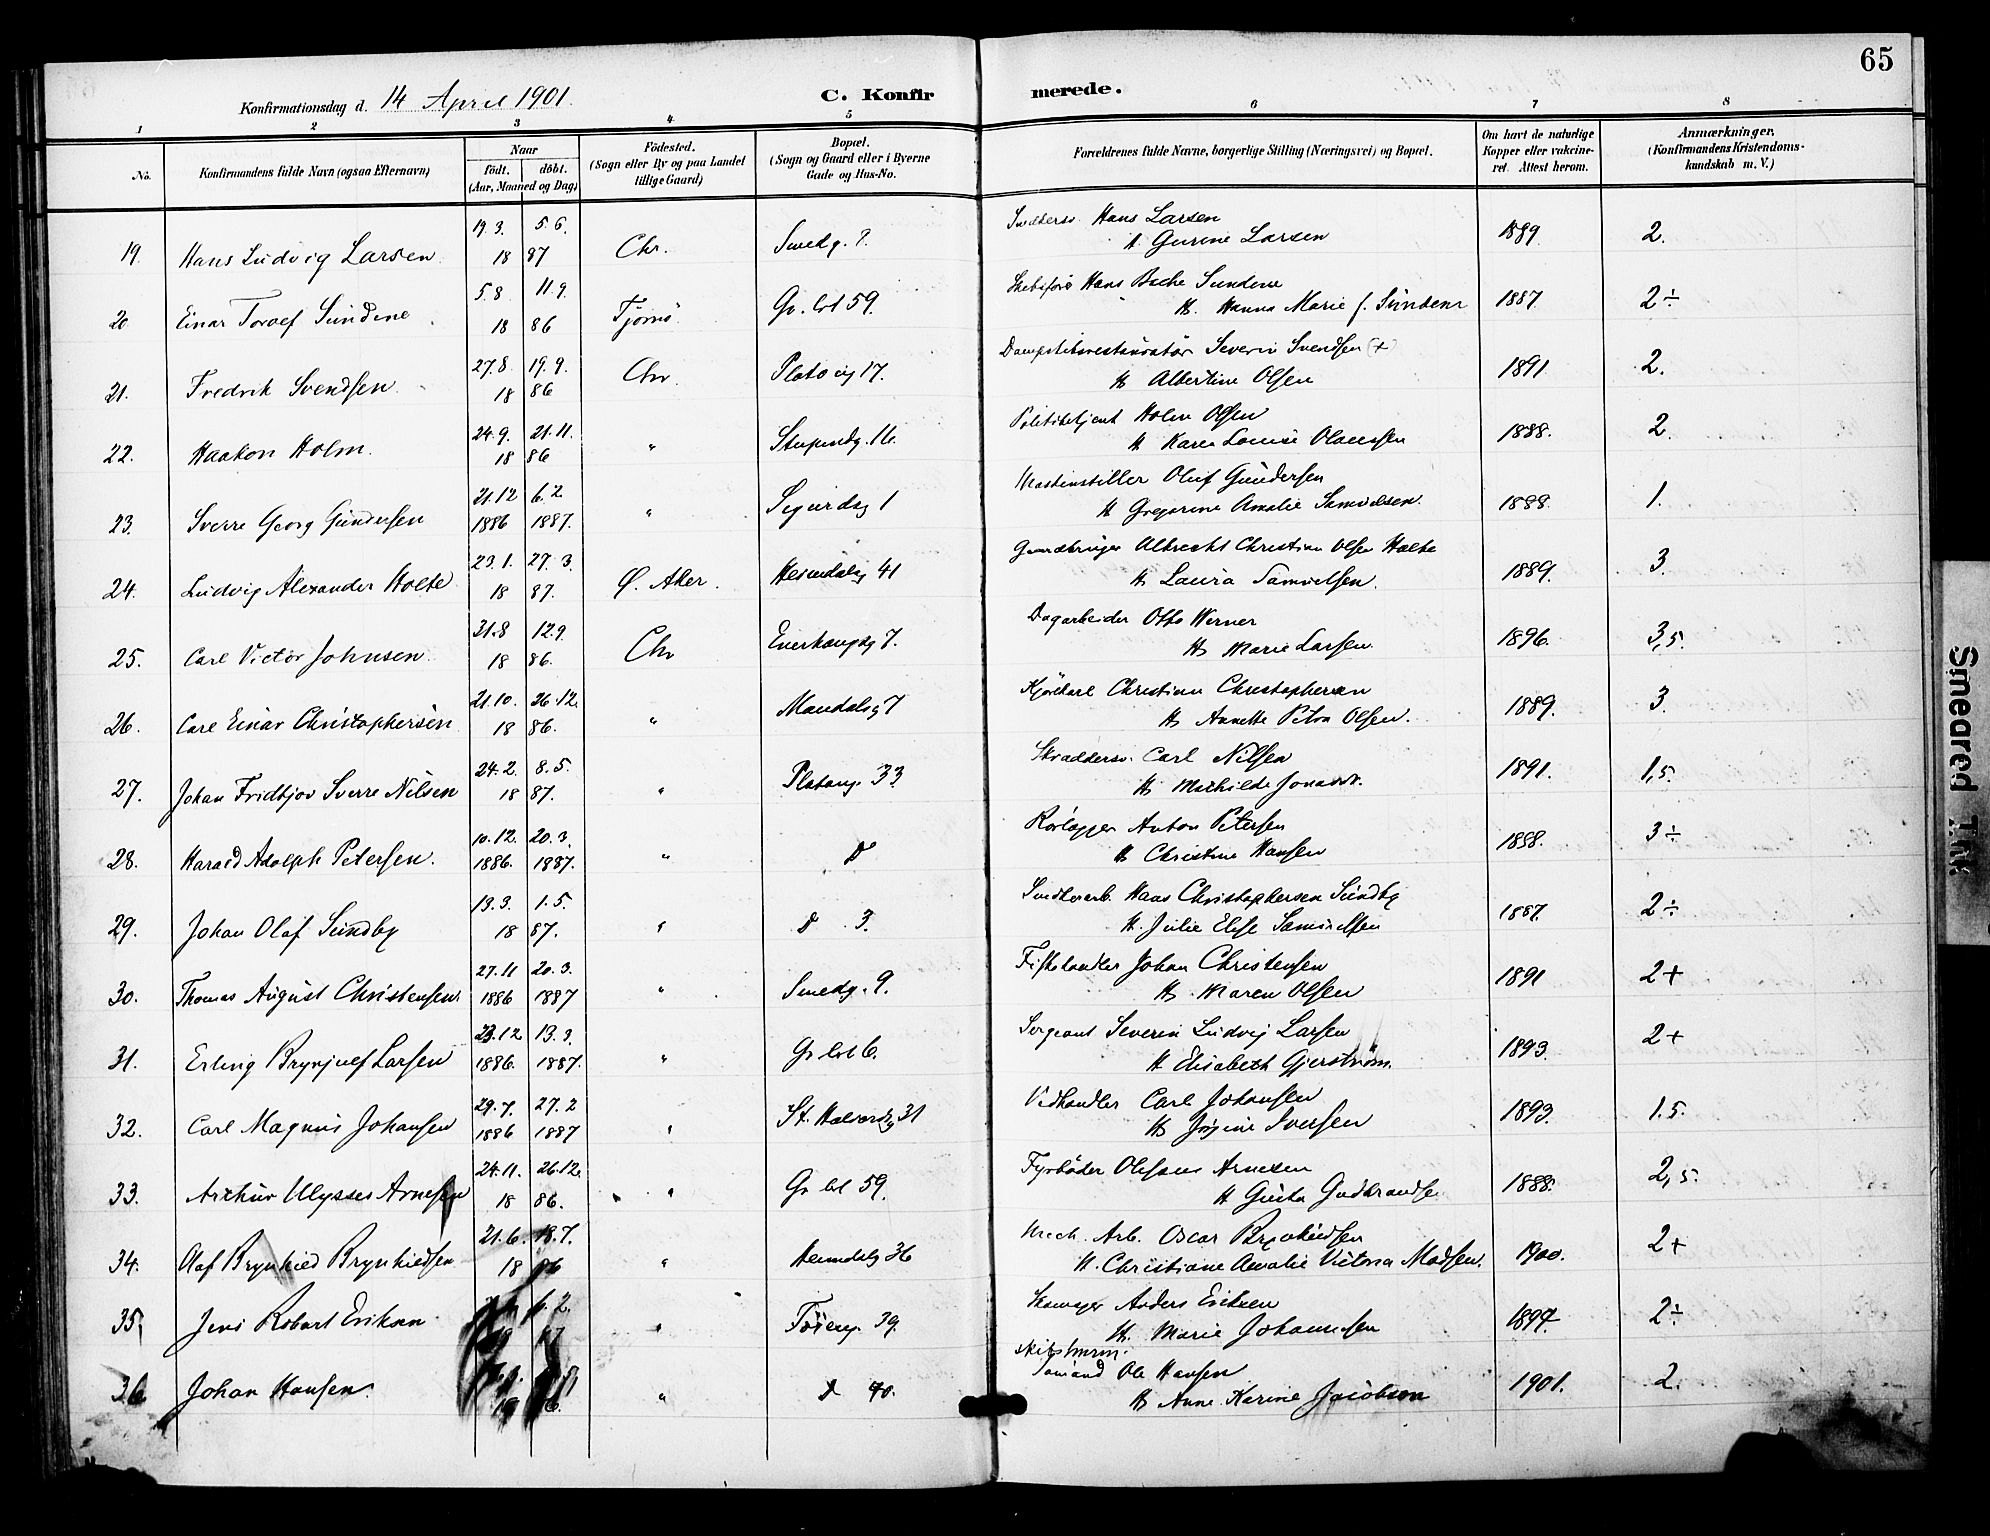 65
Konfirmationsdag d. 14 April 1901. C. Konfirmerede.
1 2 3 4 5 6 7 8
No. Konfirmandens fulde Navn (ogsaa Efternavn) Naar født. døbt. (Aar, Maaned og Dag) Fødested. (Sogn eller By og paa Landet tillige Gaard) Bopæl. (Sogn og Gaard eller i Byerne Gade og Hus-No. Forældrenes fulde Navne, borgerlige Stilling (Næringsvei) og Bopæl. Om havt de naturlige Kopper eller vakcineret. Attest herom. Anmærkninger. (Konfirmandens Kristendomskundskab m. V.)
19. Hans Ludvig Larsen 19.3. 5.6. 18 87 Chr. Smedg. 7. Hans Larsen 1889. 2.
H Gurine Larsen
20 Einar Toralf Sundene 5.8 11.9. 18 86 Tjømø. Gr. lel 59. Hans Bache Sundene 1887. 2÷
H. Hanna Marie f. Sundene
21. Fredrik Svendsen 27.8 19.9. 18 86 Chr. Platoug 17. Dampskibsrestauratør Severin Svendsen (+) 1891 2.
H Albertine Olsen
22. Haakon Holm. 24.9. 21.11. 18 86 " Stupendg. 16. Politibetjent Holm Olsen 1888. 2.
H Karen Louise Olaussen
23. Sverre Georg Gundersen 21.12 6.2 1886 1887. " Sigurdsg 1 Maskinstiller Oluf Gundersen 1888. 1.
H Gregorine Amalie Samuelsen.
24. Ludvig Alexander Holte 23.1. 27.3. 18 87. Ø. Aker. Heimdalsg 41 Albrecht Christian Olsen Holte 1889. 3.
H Laura Samuelsen.
25. Carl Victor Johnsen 31.8 12.9. 18 86. Chr Enerhaugsg 7. Dagarbeider Otto Werner 1896. 3,5.
H Marie Larsen.
26. Carl Einar Christophersen 21.10. 26.12. 18 86. " Mandalsg 7 Kjørekarl Christian Christophersen 1889. 3.
H Annette Petra Olsen.
27. Johan Fridtjov Sverre Nilsen 24.2. 8.5. 18 87. " Platoug. 33 Skræddersv. Carl Nilsen 1891. 1,5.
H Mathilde
28. Harald Adolph Petersen. 10.12. 20.3. 1886. 1887. " D Rørlægger Anton Petersen 1888. 3÷
H Christine Hansen
29. Johan Olaf Sundby 13.3. 1.5. 18 87. " D 3. Snedkerarb. Hans Christophersen Sundby 1887. 2÷
H. Julie Elise Samuelsen
30. Thomas August Christensen. 27.11 20.3. 1886 1887 " Smedg. 9. Fiskehandler Johan Christensen 1891 2+
H Maren Olsen
31. Erling Brynjulf Larsen 23.12 13.3. 1886. 1887. " Gr. lel 6. Sergeant Severin Ludvig Larsen 1893. 2+
H Elisabeth Gjerstrøm.
32. Carl Magnus Johansen 29.7. 27.2 1886 1887 " St. Halvordsg 31 Vedhandler Carl Johansen 1893. 1.5.
H Iversen
33. Arthur Ulysses Arnesen 24.11. 26.12. 18 86. " Gr lel 59. Fyrbøder Arnesen 1888. 2,5.
H Gusta Gudbrandse
34. Olaf Brynhild Brynhildsen 21.6. 18.7. 18 86 " Heimdalsg 36 Mech. Arb. Oscar Brynhildsen 1900. 2+
H. Christiane Amalie Victoria Madsen.
35. Jens Robert Eriksen " Tøieng. 39. Skomager Anders Eriksen 1897. 2÷
H. Marie Johannesen
36 Johan Hansen. " D 40. Sømand Ole Hansen 1901. 2.
H Anne Karine Jacobsen
Smeared Ink